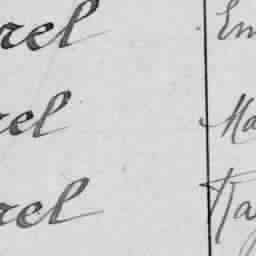 rel Em
rel Ma
rel Kay